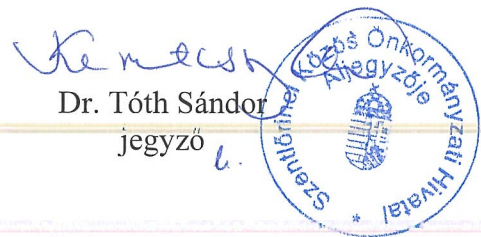 Dr. Tóth Sándor
jegyző
h.
Szentlőrinci Közös Önkormányzati Hivatal
Aljegyzője
*